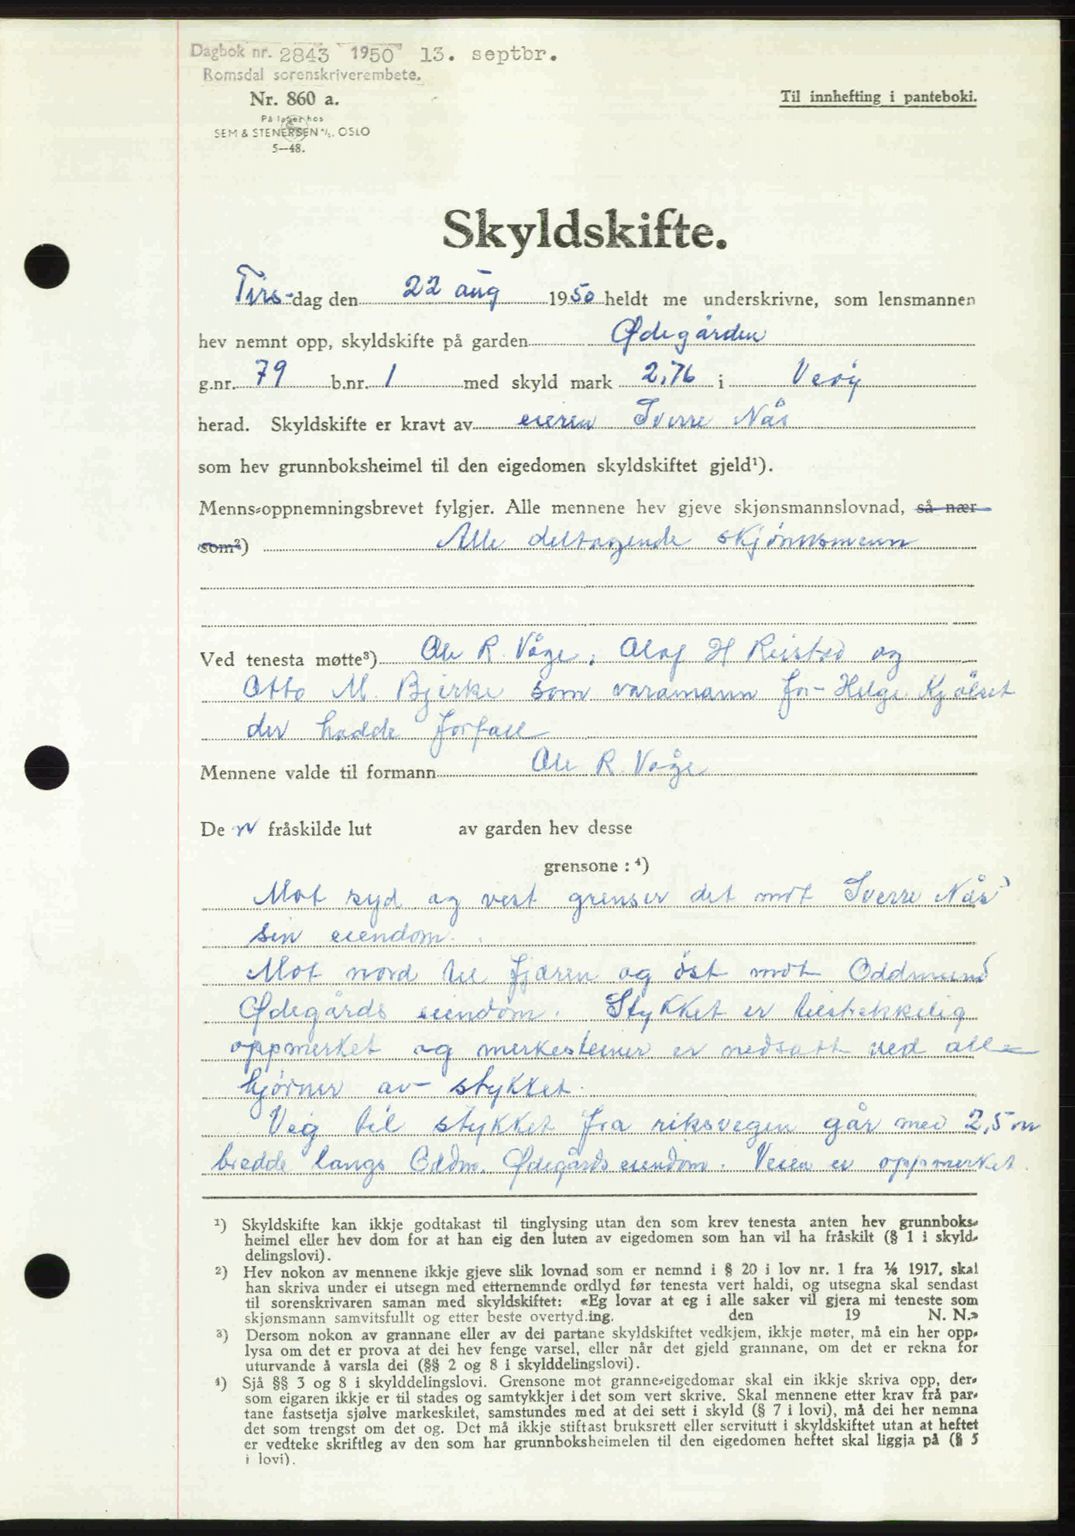 Dagbok nr. 2843 1950 13. septbr.
Romsdal sorenskriverembete.
Nr. 860 a.
På lager hos
SEM & STENERSEN A/S, OSLO
5—48.
Til innhefting i panteboki.
Skyldskifte.
Tirs-dag den 22 aug 1950 heldt me underskrivne, som lensmannen
hev nemnt opp, skyldskifte på garden Ødegården
g.nr. 79 b.nr. 1 med skyld mark 2,76 i Veøy
herad. Skyldskifte er kravt av eieren Sverre Nås
som hev grunnboksheimel til den eigedomen skyldskiftet gjeld¹).
Menns-oppnemningsbrevet fylgjer. Alle mennene hev gjeve skjønsmannslovnad, så nær
som²) Alle deltagende skjønnsmenn
Ved tenesta møtte³) Ole R. Våge, Olaf H Reistad og
Otto M. Bjerke som varamann for Helge Kjølset
der hadde forfall
Mennene valde til formann Ole R. Våge
De n fråskilde lut av garden hev desse
grensone : ⁴)
Mot syd og vest grenser det mot Sverre Nås'
sin eiendom.
Mot nord til fjæren og öst mot Oddmund
Ødegårds eiendom. Stykket er tilstrekkelig
oppmerket og merkesteiner er nedsatt ved alle
hjørner av stykket.
Veg til stykket fra riksvegen går med 2,5 m
bredde langs Oddm. Ødegårds eiendom. Veien er oppmerket.
¹) Skyldskifte kan ikkje godtakast til tinglysing utan den som krev tenesta anten hev grunnboks-
heimel eller hev dom for at han eig den luten av eigedomen som han vil ha fråskilt (§ 1 i skyld-
delingslovi).
²) Hev nokon av mennene ikkje gjeve slik lovnad som er nemnd i § 20 i lov nr. 1 fra 1/6 1917, skal
han skriva under ei utsegn med etternemnde ordlyd før tenesta vert haldi, og utsegna skal sendast
til sorenskrivaren saman med skyldskiftet: «Eg lovar at eg i alle saker vil gjera mi teneste som
skjønsmann samvitsfullt og etter beste overtyding. den 19 N. N.»
³) Dersom nokon av grannane eller av dei partane skyldskiftet vedkjem, ikkje møter, må ein her opp-
lysa om det er prova at dei hev fenge varsel, eller når det gjeld grannane, om det er rekna for
uturvande å varsla dei (§§ 2 og 8 i skylddelingslovi).
⁴) Sjå §§ 3 og 8 i skylddelingslovi. Grensone mot granne-eigedomar skal ein ikkje skriva opp, der-
som eigaren ikkje er til stades og samtykkjer i det som vert skrive. Skal mennene etter krav frå par-
tane fastsetja sjølve markeskilet, samstundes med at dei sett i skyld (§ 7 i lovi), må dei her nemna
det som trengst om det og. Det må ikkje stiftast bruksrett eller servitutt i skyldskiftet utan at heftet
er vedteke skriftleg av den som har grunnboksheimelen til den eigedomen heftet skal liggja på (§ 5
i lovi).